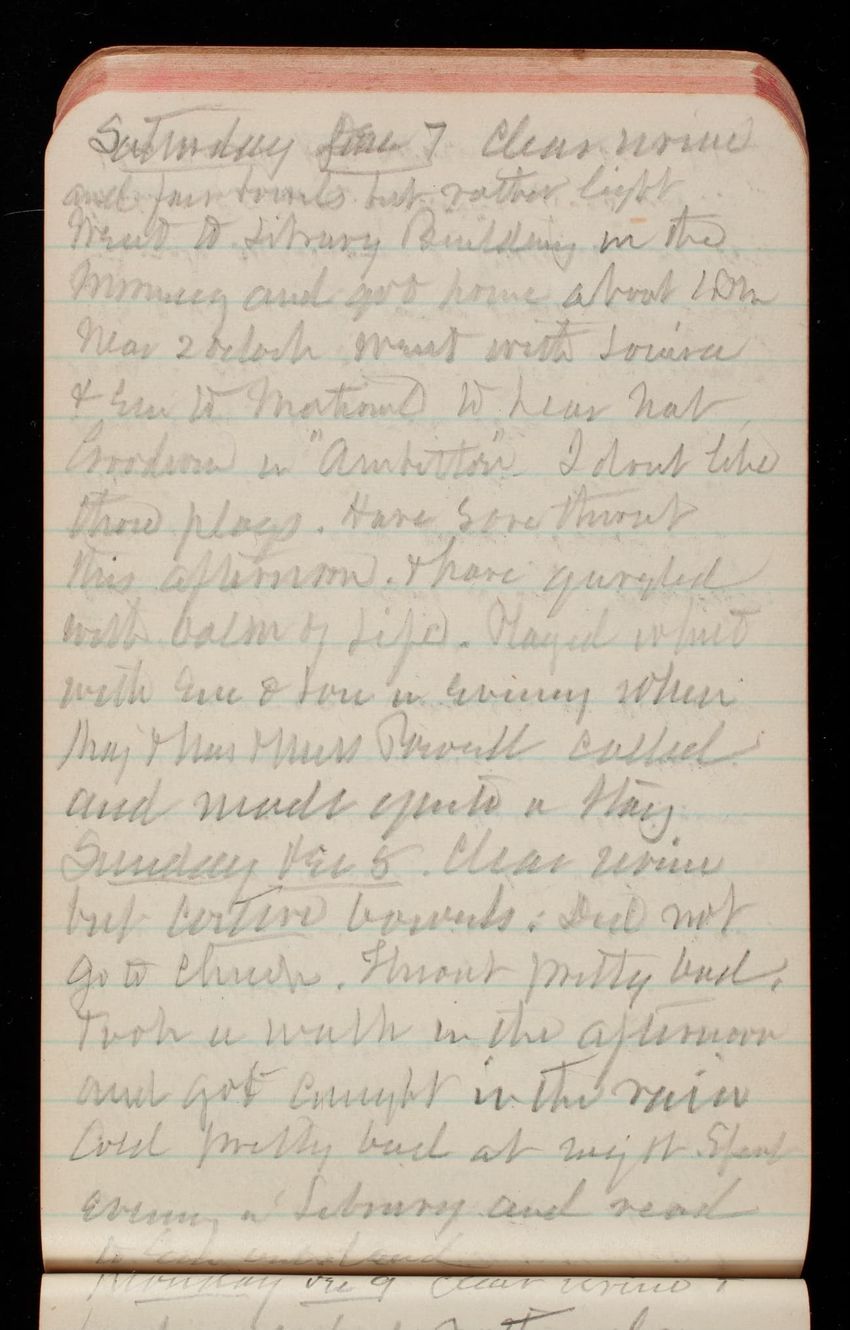 Saturday Dec 7 Clear urine
and fair bowels but rather light
Went to Library Building in the
Morning and got home about 1 Pm
Near 2 oclock went with Louisa
& Eve to National to hear Nat
Goodwin in "Ambition". I dont like
those plays. Have Sore throat
this afternoon. & have gurgled
with balm of Life. Played whist
with Eve & Lou in Evening when
Maj & Mrs & Miss Powell called
and made quite a stay
Sunday Dec 8. Clear urine
but costive bowels. Did not
go to Church. Throat pretty bad.
Took a walk in the afternoon
and got caught in the rain
Cold pretty bad at night Spent
evening in Library and read
to
Monday Dec 9 Clear urine &